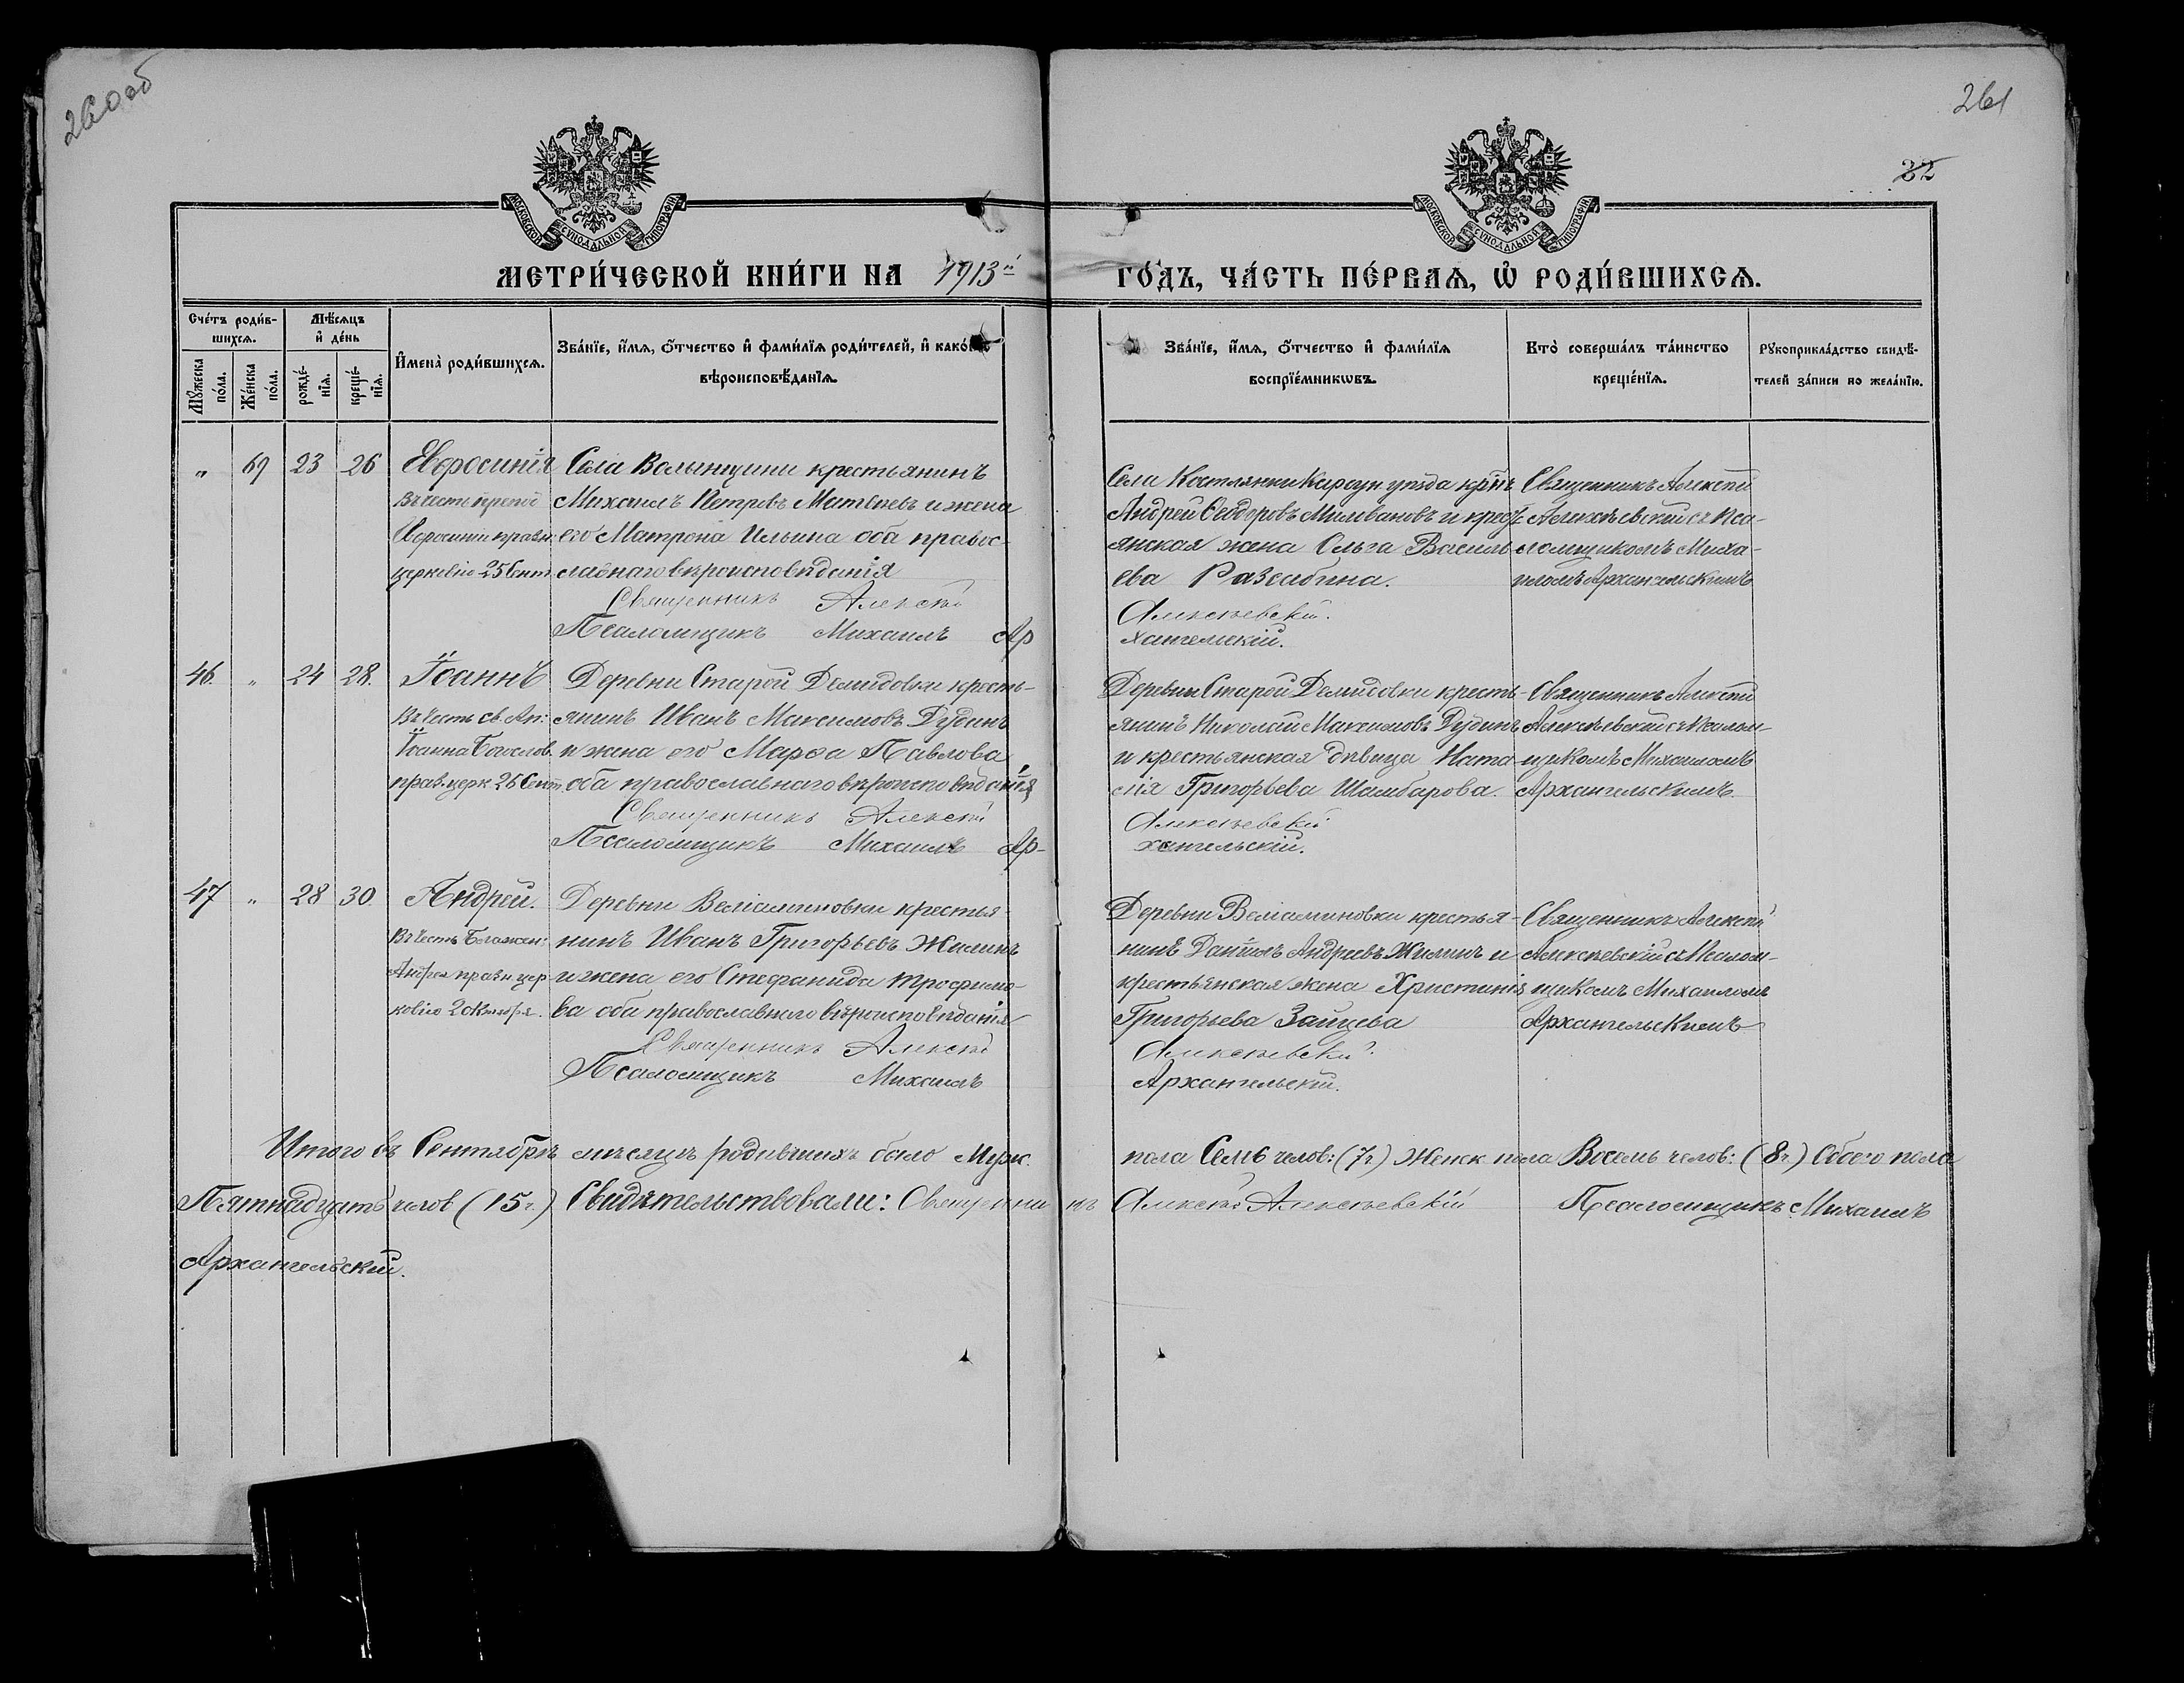 260об
261
32
МОСКОВСКОЙ СѴНОДАЛЬНОЙ ТИПОГРАФІИ
МОСКОВСКОЙ СѴНОДАЛЬНОЙ ТИПОГРАФІИ
МЕТРИ́ЧЕСКОЙ КНИ́ГИ НА 1913й ГО́ДЪ, ЧА́СТЬ ПЕ́РВАѦ, Ѡ҆ РОДИ́ВШИХСѦ.
Сче́тъ роди́в-
шихсѧ.
Мꙋ́жеска по́ла.
Же́нска по́ла.
Мѣ́сѧцъ
и҆ де́нь
рожде́-
нїѧ.
креще́-
нїѧ.
И҆мена̀ роди́вшихсѧ.
Зва́нїе, и҆́мѧ, ѻ҆́тчество и҆ фами́лїѧ роди́телей, и҆ како́гѡ
вѣроисповѣ́данїѧ.
Зва́нїе, и҆́мѧ, ѻ҆́тчество и҆ фами́лїѧ
воспрїе́мникѡвъ.
Кто̀ соверша́лъ та́инство
креще́нїѧ.
Рꙋкоприкла́дство свидѣ́-
телей за́писи по жела́нїю.
" 69 23 26 Евфросинія
Въ честь препод
Евфросиніи празн.
церковію 25 Сент
Села Волынщины крестьянинъ
Михаилъ Петровъ Матвѣевъ и жена
его Матрона Ильина оба правос-
славнаго вѣроисповѣданія
Священникъ Алексѣй
Псаломщикъ Михаилъ Ар
Села Костлянки уѣзда
Андрей Ѳеодоровъ и крестъ-
янская жена Ольга Василь-
ева
Алексѣевскій.
хангельскій.
Священникъ Алексѣй
Алексѣевскій съ Пса-
ломщикомъ Миха-
иломъ Архангельскимъ
46. " 24 28. Іоаннъ
Въ честь св. Ап:
Іоанна Богослов.
празн. церк. 26 Сент.
Деревни Старой Демидовки кресть-
янинъ Иванъ Максимовъ Дудинъ
и жена его Марѳа Павлова
оба православнаго вѣроисповѣданія
Священникъ Алексѣй
Псаломщикъ Михаилъ Ар-
Деревни Старой Демидовки кресть-
янинъ Николай Максимовъ Дудинъ
и крестьянская дѣвица Ната-
лія Григорьева Шамбарова.
Алексѣевскій
хангельскій.
Священникъ Алексѣй
Алексѣевскій съ Псалом-
щикомъ Михаиломъ
Архангельскимъ.
47 " 28 30. Андрей.
Въ честь Блажен:
Андрея празн. цер-
ковію 2 Октября.
Деревни Веліаминовки крестья-
нинъ Иванъ Григорьевъ Жилинъ
и жена его Стефанида Трофимо-
ва оба православнаго вѣроисповѣданія
Священникъ Алексѣй
Псаломщикъ Михаилъ
Деревни Веліаминовки крестья-
нинъ Даніилъ Андреевъ Жилинъ и
крестьянская жена Христинія
Григорьева Зайцева
Алексѣевскій.
Архангельскій.
Священникъ Алексѣй
Алексѣевскій съ Псалом-
щикомъ Михаиломъ
Архангельскимъ
Итого въ Сентябрѣ мѣсяцѣ родившихъ было Муж. пола Семь челов: (7 ч.) Женск пола Восемь челов: (8 ч.) Обоего пола
Пятнадцать челов (15 ч.) Свидѣтельствовали: Священникъ Алексѣй Алексѣевскій Псаломщикъ Михаилъ
Архангельскій.